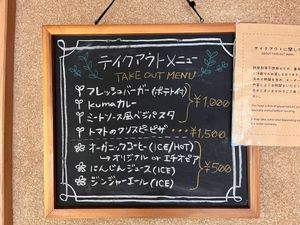 テイクアウトメニュー
TAKE OUT MENU
フレッシュバーガー(ポテト付)
kumaカレー
ミートソース風ベジパスタ
¥1,000
トマトのクリスピーピザ・・・¥1,500
オーガニックコーヒー(ICE/HOT)
→オリジナル or エチオピア
にんじんジュース(ICE)
ジンジャーエール(ICE)
¥500
テイクアウトに関し
ABOUT TAKE OUT MENU